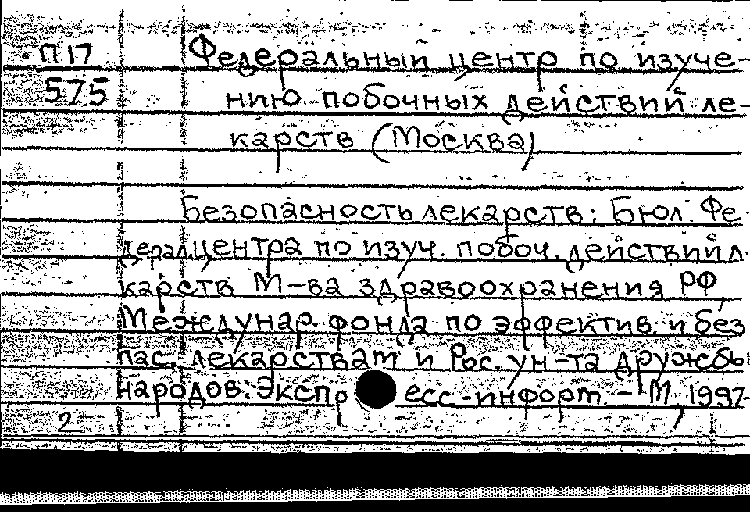 П17 Федеральный центр по изуче-
575 нию побочных действий ле-
карств (Москва)
Безопасность лекарств: Бюл. Фе
дерал.центра по изуч. побоч. действий л
карств М-ва здравоохранения РФ,
Междунар. фонда по эффектив. и без
пас. лекарствам и Рос. ун-та дружбы
народов: Экспресс-информ. – М, 1997-
2